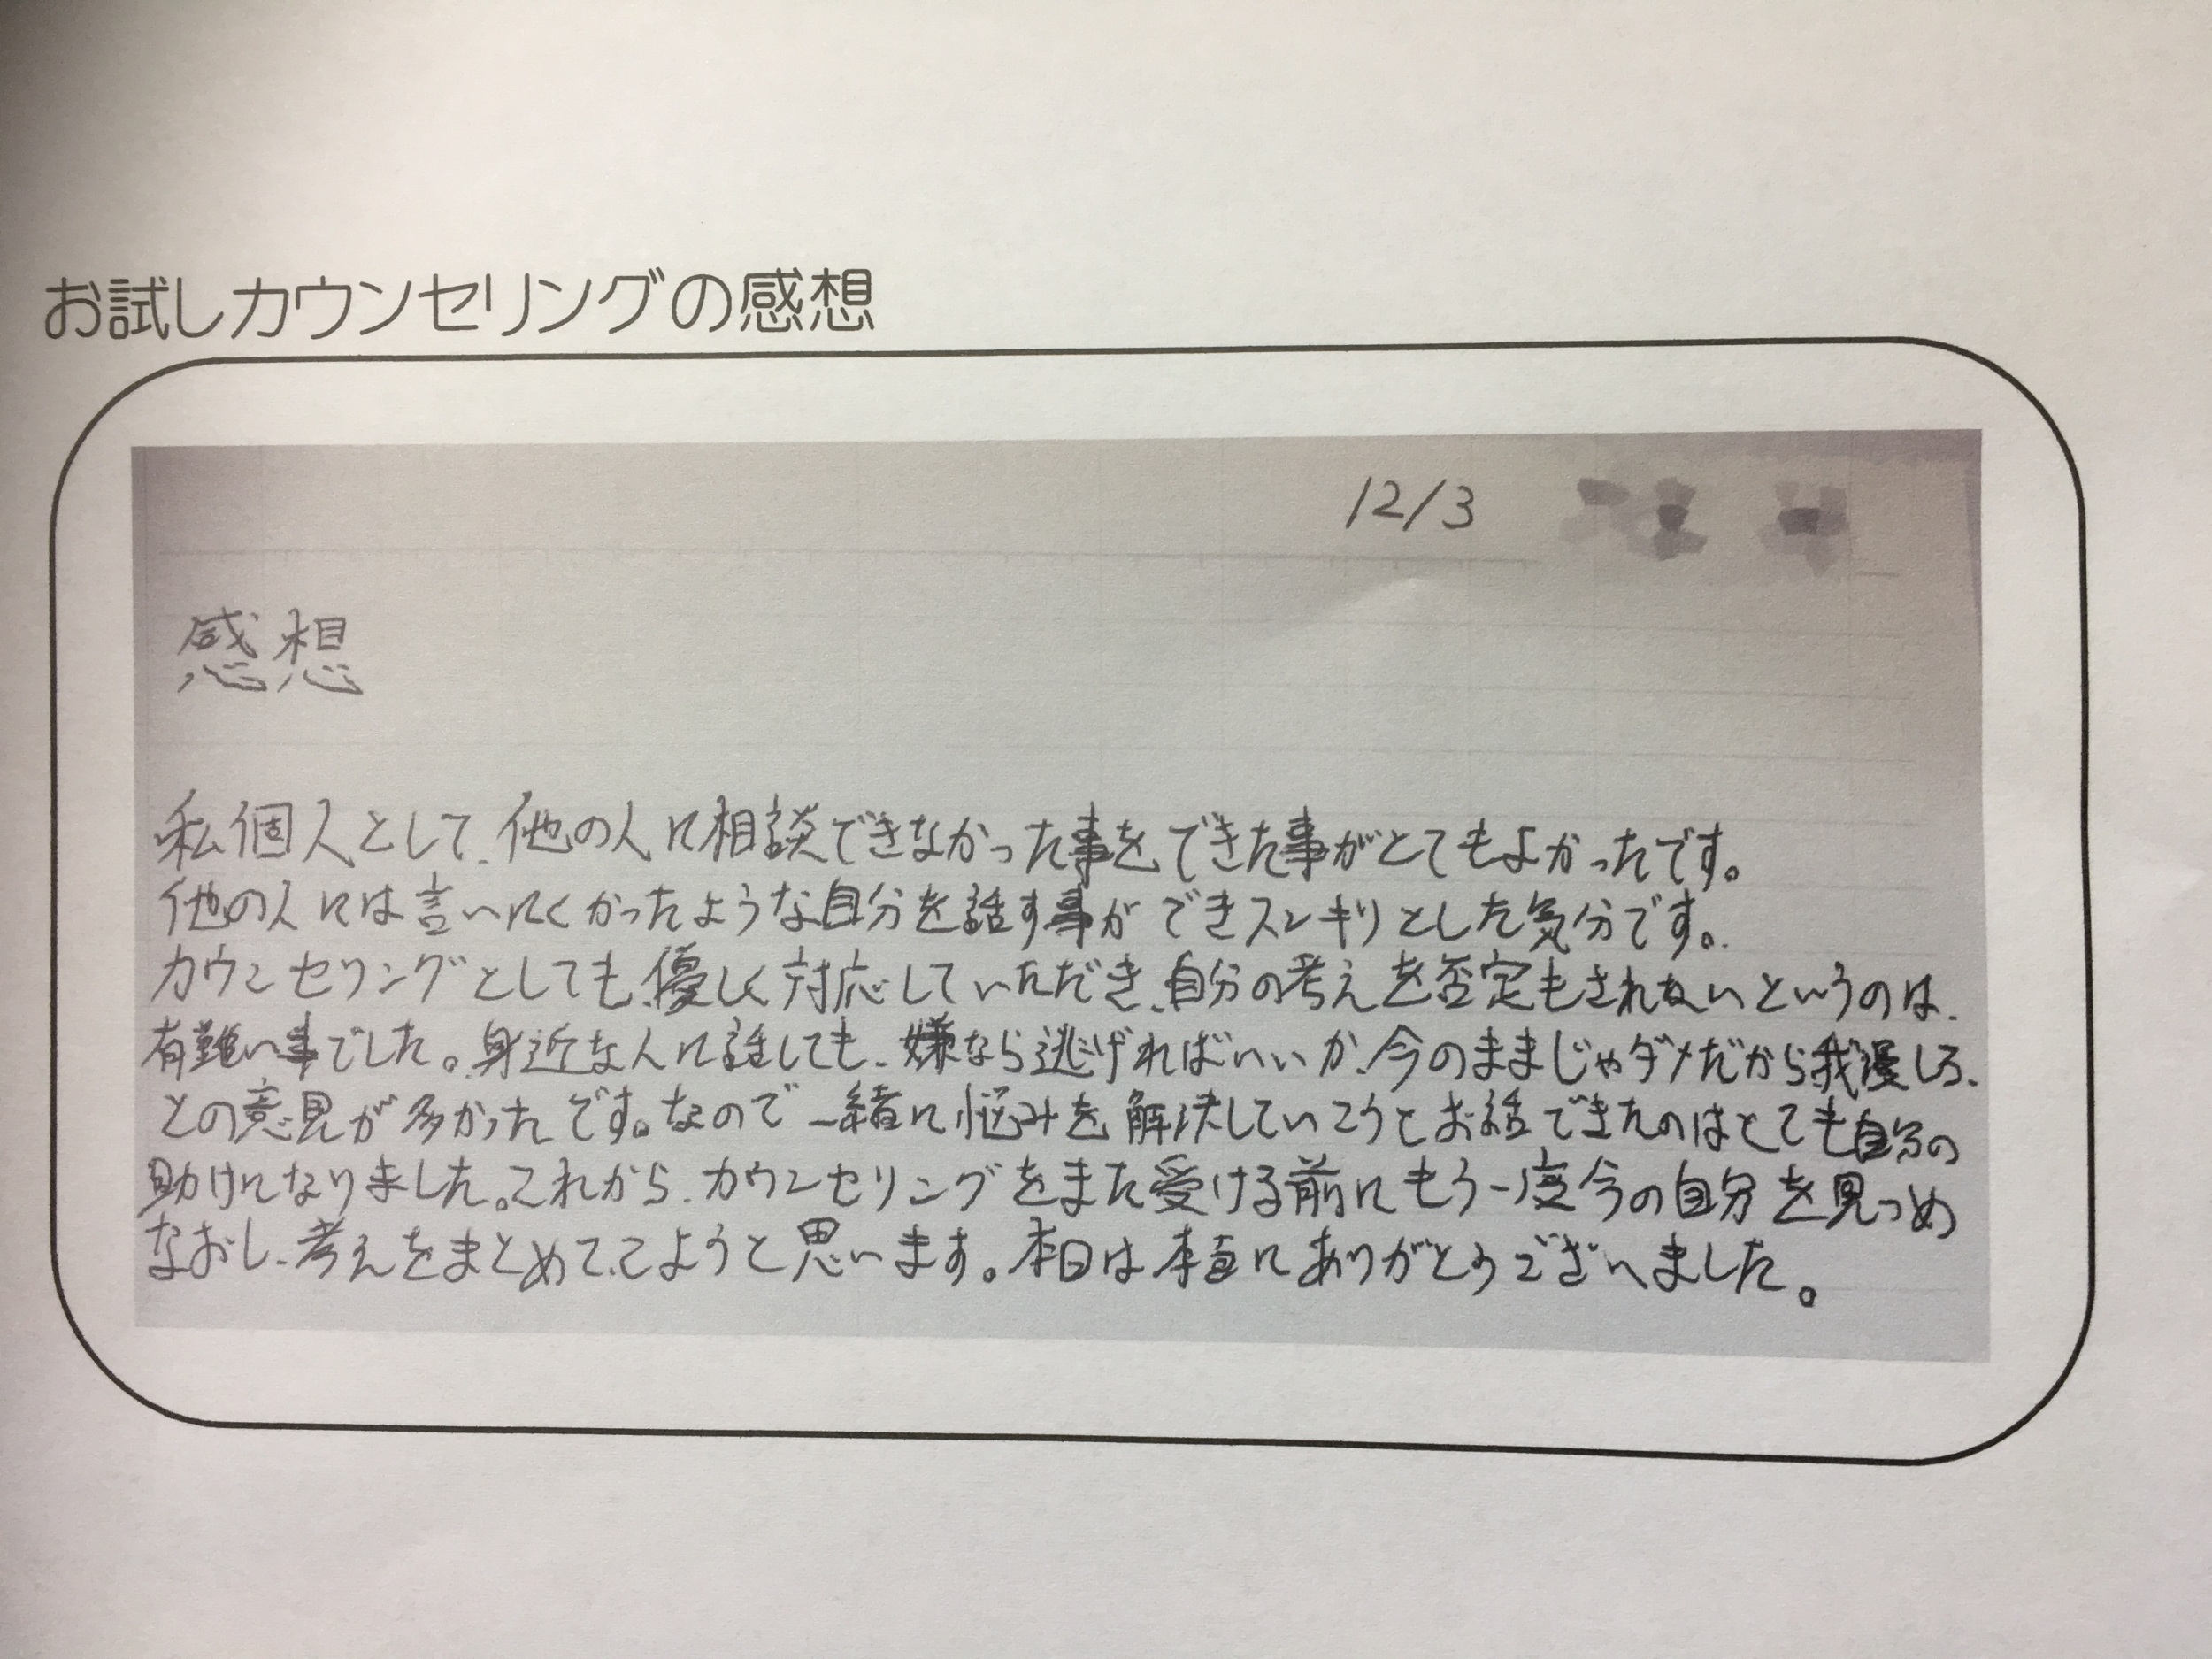 お試しカウンセリングの感想
12/3
感想
私個人として、他の人に相談できなかった事をできた事がとてもよかったです。
他の人には言いにくかったような自分を話す事ができスッキリとした気分です。
カウンセリングとしても、優しく対応していただき、自分の考えを否定もされないというのは、
有難い事でした。身近な人に話しても、嫌なら逃げればいいか、今のままじゃダメだから我慢しろ、
との意見が多かったです。なので一緒に悩みを解決していこうとお話できたのはとても自分の
助けになりました。これから、カウンセリングをまた受ける前にもう一度今の自分を見つめ
なおし、考えをまとめてこようと思います。本日は本当にありがとうございました。